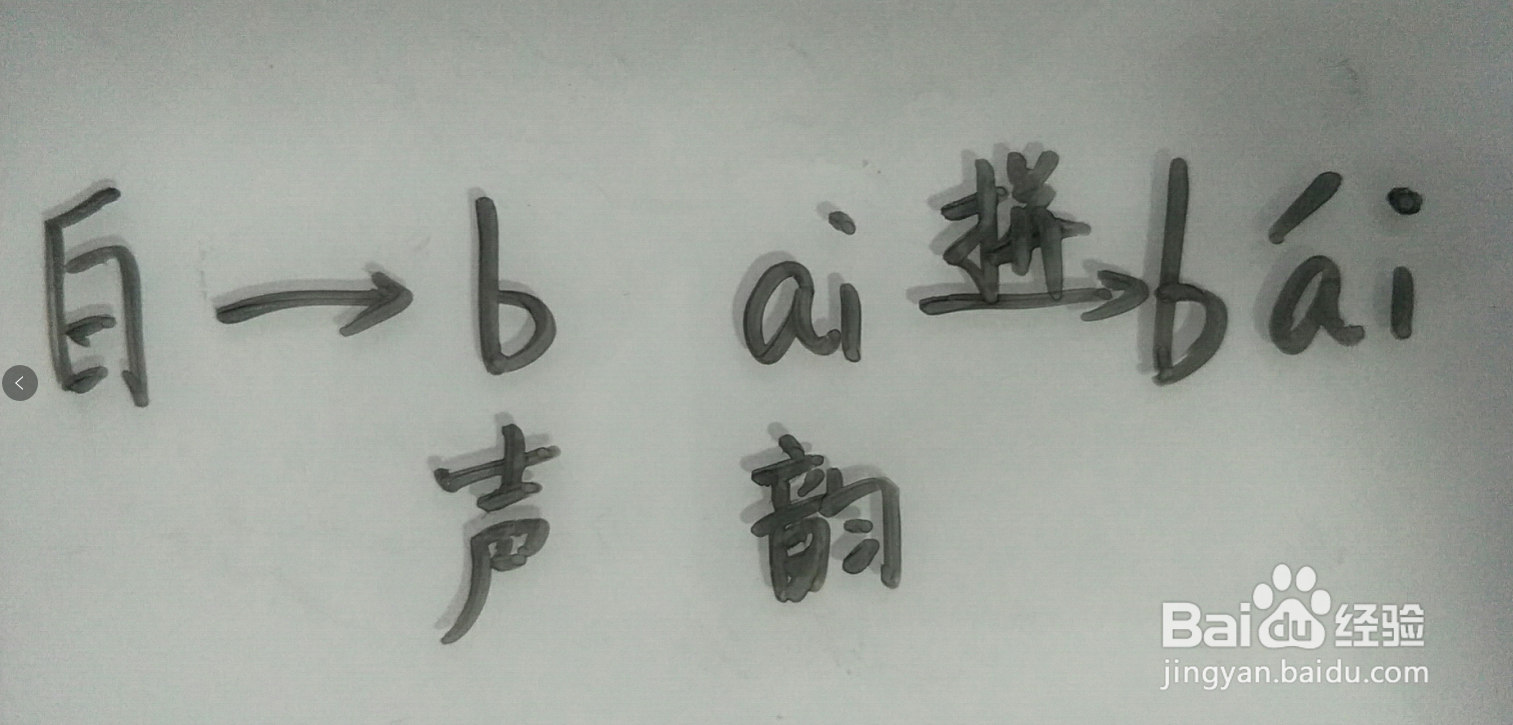 白 → b ai 拼→ bái
声 韵
Bai du 经验
jingyan.baidu.com